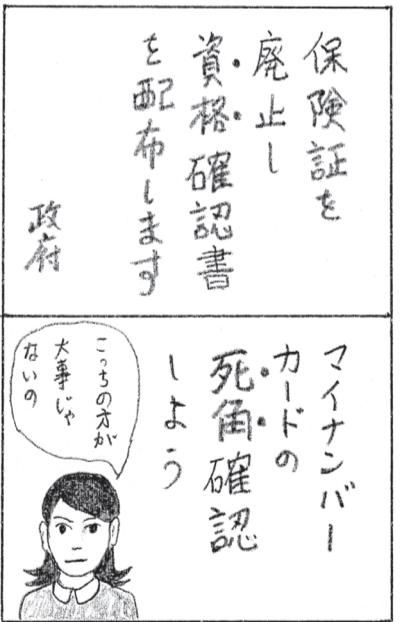 保険証を
廃止し
資格確認書
を配布します
政府
マイナンバー
カードの
死角確認
しよう
こっちの方が
大事じゃ
ないの